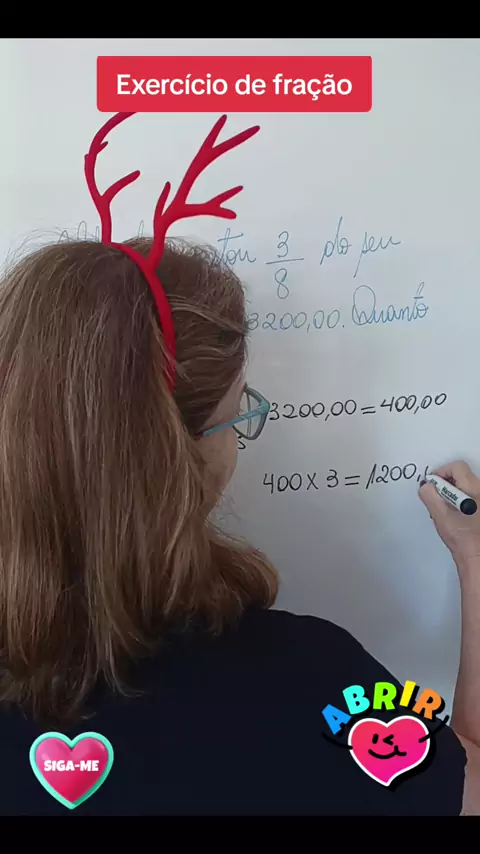 Exercício de fração
3 do seu
8
3200,00. Quanto
3200,00 = 400,00
400 x 3 = 1200,
ABRIR
SIGA-ME